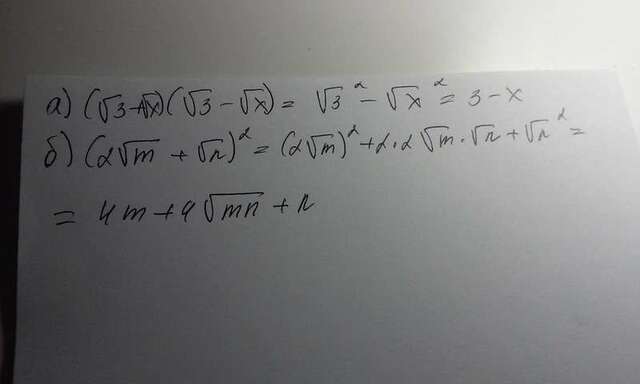 а) (√3+√x)(√3-√x) = √3² - √x² = 3-x
б) (2√m + √n)² = (2√m)² + 2·2√m·√n + √n² =
= 4m + 4√mn + n